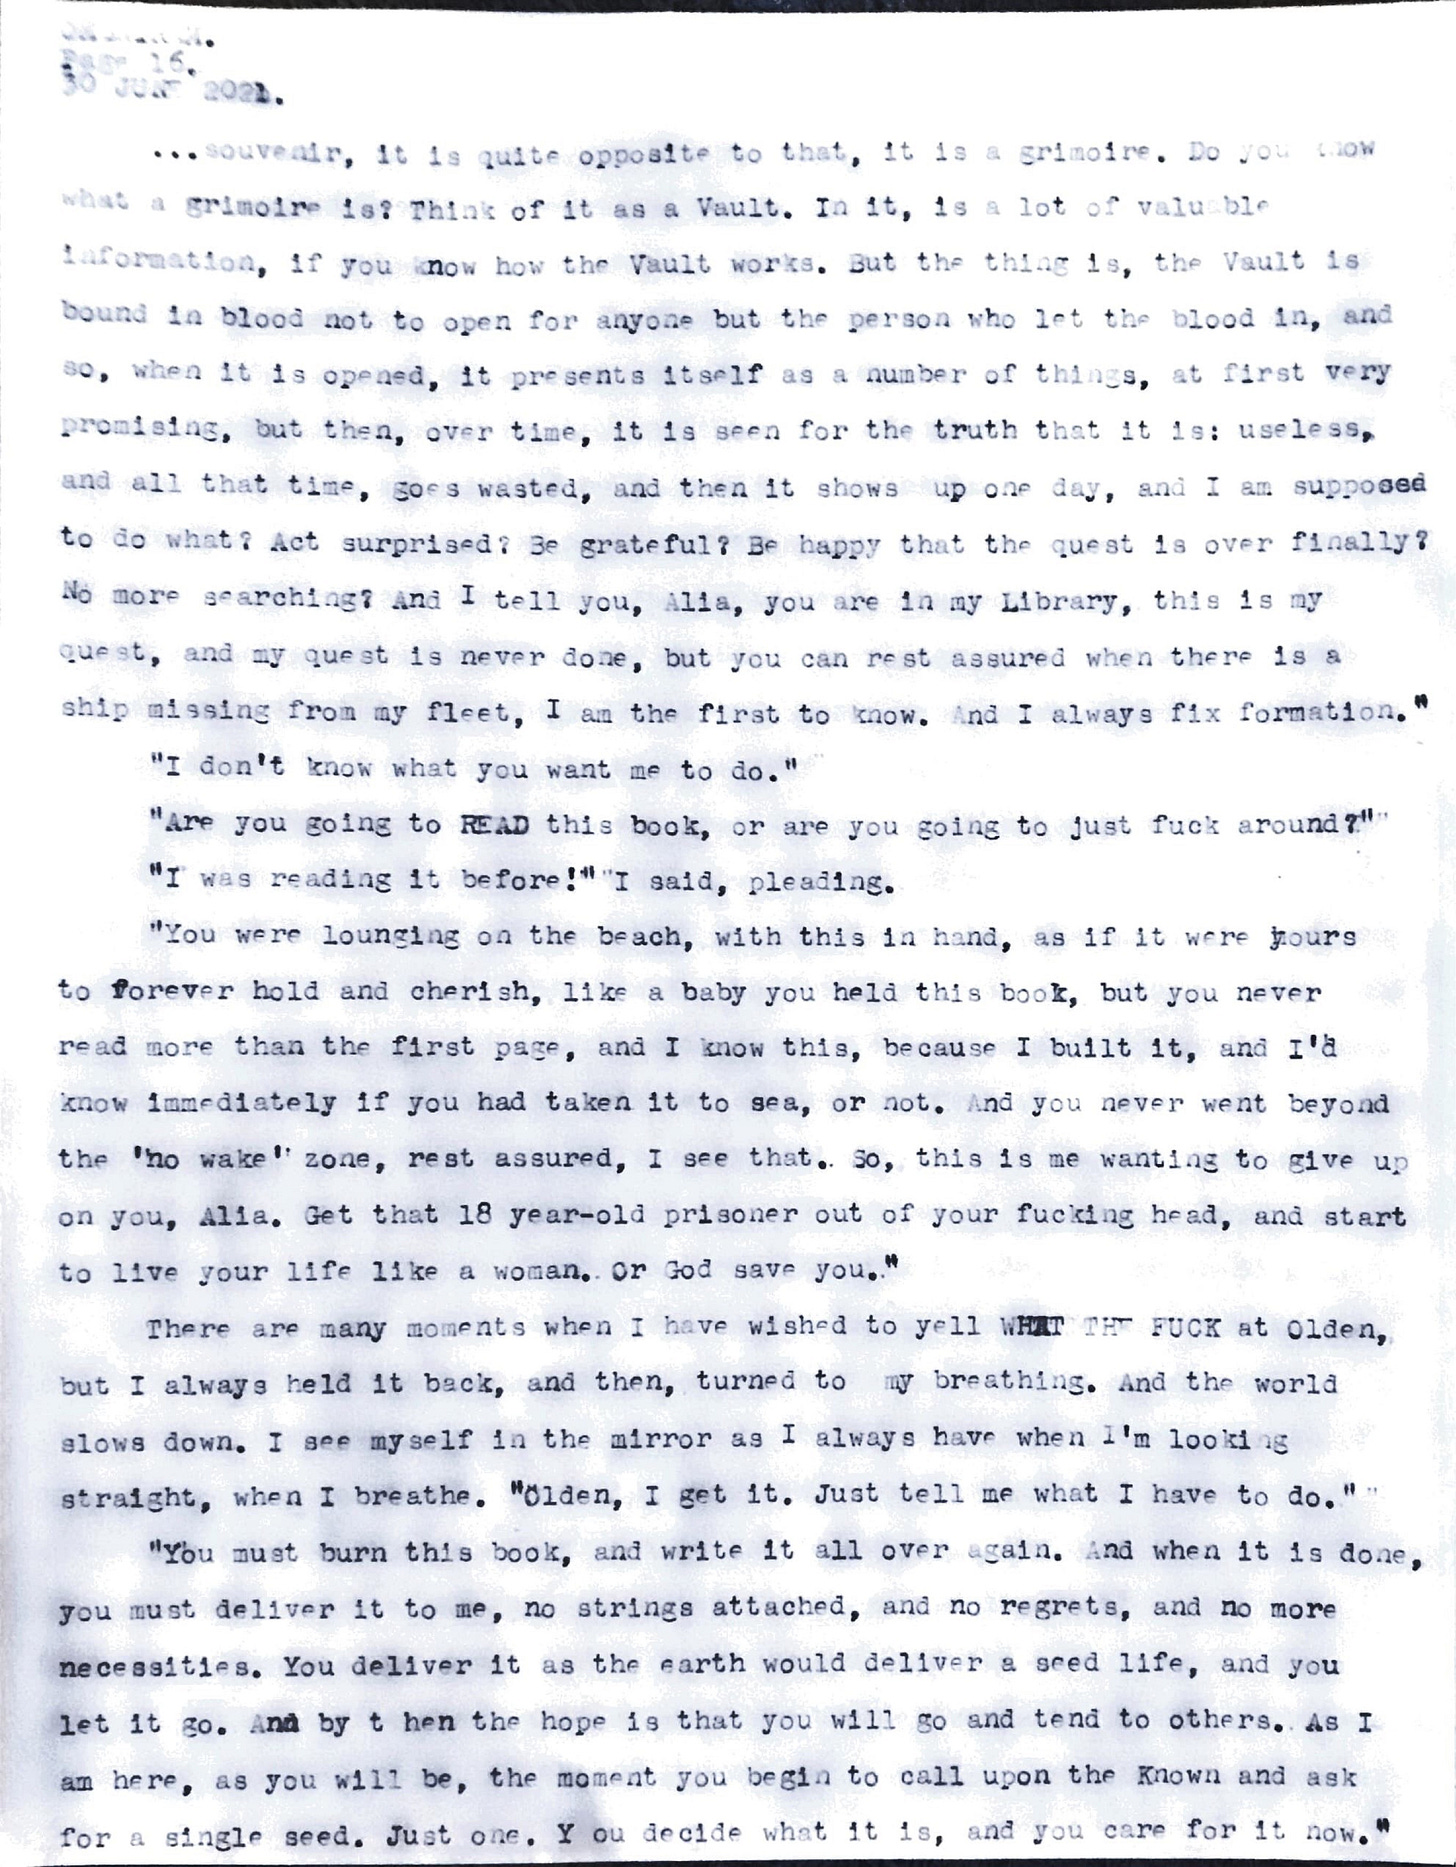 Page 16.
30 JUNE 2021.
...souvenir, it is quite opposite to that, it is a grimoire. Do you know
what a grimoire is? Think of it as a Vault. In it, is a lot of valuable
information, if you know how the Vault works. But the thing is, the Vault is
bound in blood not to open for anyone but the person who let the blood in, and
so, when it is opened, it presents itself as a number of things, at first very
promising, but then, over time, it is seen for the truth that it is: useless,
and all that time, goes wasted, and then it shows up one day, and I am supposed
to do what? Act surprised? Be grateful? Be happy that the quest is over finally?
No more searching? And I tell you, Alia, you are in my Library, this is my
quest, and my quest is never done, but you can rest assured when there is a
ship missing from my fleet, I am the first to know. And I always fix formation."
"I don't know what you want me to do."
"Are you going to READ this book, or are you going to just fuck around?"
"I was reading it before!" I said, pleading.
"You were lounging on the beach, with this in hand, as if it were yours
to forever hold and cherish, like a baby you held this book, but you never
read more than the first page, and I know this, because I built it, and I'd
know immediately if you had taken it to sea, or not. And you never went beyond
the 'no wake' zone, rest assured, I see that. So, this is me wanting to give up
on you, Alia. Get that 18 year-old prisoner out of your fucking head, and start
to live your life like a woman. Or God save you."
There are many moments when I have wished to yell WHAT THE FUCK at Olden,
but I always held it back, and then, turned to my breathing. And the world
slows down. I see myself in the mirror as I always have when I'm looking
straight, when I breathe. "Olden, I get it. Just tell me what I have to do."
"You must burn this book, and write it all over again. And when it is done,
you must deliver it to me, no strings attached, and no regrets, and no more
necessities. You deliver it as the earth would deliver a seed life, and you
let it go. And by t hen the hope is that you will go and tend to others. As I
am here, as you will be, the moment you begin to call upon the Known and ask
for a single seed. Just one. Y ou decide what it is, and you care for it now."